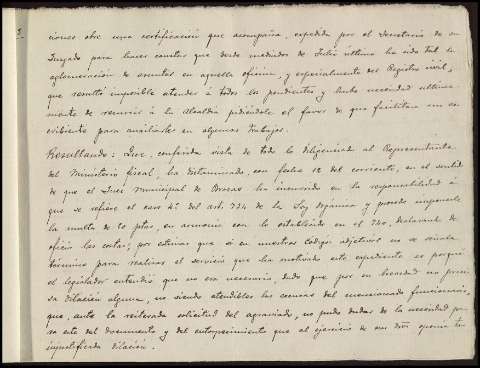 ciones obre una certificación que acompaña, expedida por el Secretario de su
Juzgado para hacer constar que desde mediados de Julio último ha sido tal la
aglomeración de asuntos en aquella oficina, y especialmente del Registro civil,
que resultó imposible atender á todos los pendientes y hubo necesidad ultima-
mente de recurrir á la Alcaldía pidiéndole el favor de que facilitara un es-
cribiente para auxiliarle en algunos trabajos.
Resultando: Que, conferida vista de todo lo diligenciado al Representante
del Ministerio fiscal, ha dictaminado, con fecha 12 del corriente, en el sentido
de que el Juez municipal de ha incurrido en la responsabilidad á
que se refiere el caso 4º del art. 734 de la Ley orgánica y procede imponerle
la multa de 50 ptas, en armonía con lo establecido en el 740, declarando de
oficio las costas; por estimar que si en nuestros códigos adjetivos no se señala
término para realizar el servicio que ha motivado este expediente es porque
el legislador entendió que no era necesario, dado que por su brevedad no preci-
sa dilación alguna, no siendo atendibles las excusas del mencionado funcionario,
que, ante la reiterada solicitud del agraviado, no pudo dudar de la necesidad pa-
ra este del documento y del entorpecimiento que al ejercicio de sus dros oponia tan
injustificada dilación.